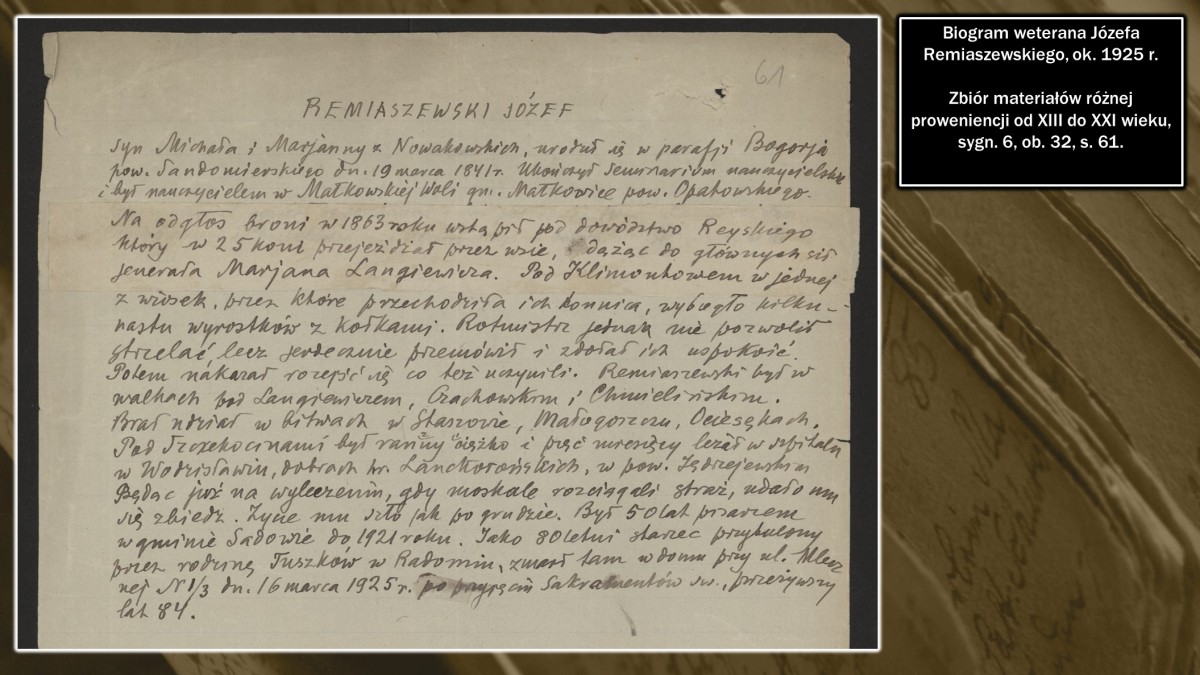 61
REMIASZEWSKI JÓZEF
syn Michała i Marjanny z Nowakowskich, urodził się w parafji Bogorja
pow. Sandomierskiego dn. 19 marca 1841 r. Ukończył Seminarium nauczycielskie
i był nauczycielem w Małkowskiej Woli gm. Małkowice pow. Opatowskiego.
Na odgłos broni w 1863 roku wstąpił pod dowództwo Reyskiego
który w 25 koni przejeżdżał przez wsie, dążąc do głównych sił
jenerała Marjana Langiewicza. Pod Klimontowem w jednej
z wiosek, przez które przechodziła ich konnica, wybiegło kilku-
nastu wyrostków z kołkami. Rotmistrz jednak nie pozwolił
strzelać lecz serdecznie przemówił i zdołał ich uspokoić.
Potem nakazał rozejść się co też uczynili. Remiaszewski był w
walkach pod Langiewiczem, Czachowskim i Chmielińskim.
Brał udział w bitwach w Staszowie, Małogoszczu, Ociesękach.
Pod Szczekocinami był ranny ciężko i pięć miesięcy leżał w szpitalu
w Wodzisławiu, dobrach hr. Lanckorońskich, w pow. Jędrzejewskim
Będąc już na wyleczeniu, gdy moskale rozciągali straż, udało mu
się zbiedz. Życie mu szło jak po grudzie. Był 50 lat pisarzem
w gminie Sadowie do 1921 roku. Jako 80 letni starzec przytulony
przez rodzinę Tuszków w Radomiu, zmarł tam w domu przy ul. Mlecz
nej N 1/3 dn. 16 marca 1925 r. po przyjęciu Sakramentów św., przeżywszy
lat 84.
Biogram weterana Józefa
Remiaszewskiego, ok. 1925 r.
Zbiór materiałów różnej
proweniencji od XIII do XXI wieku,
sygn. 6, ob. 32, s. 61.